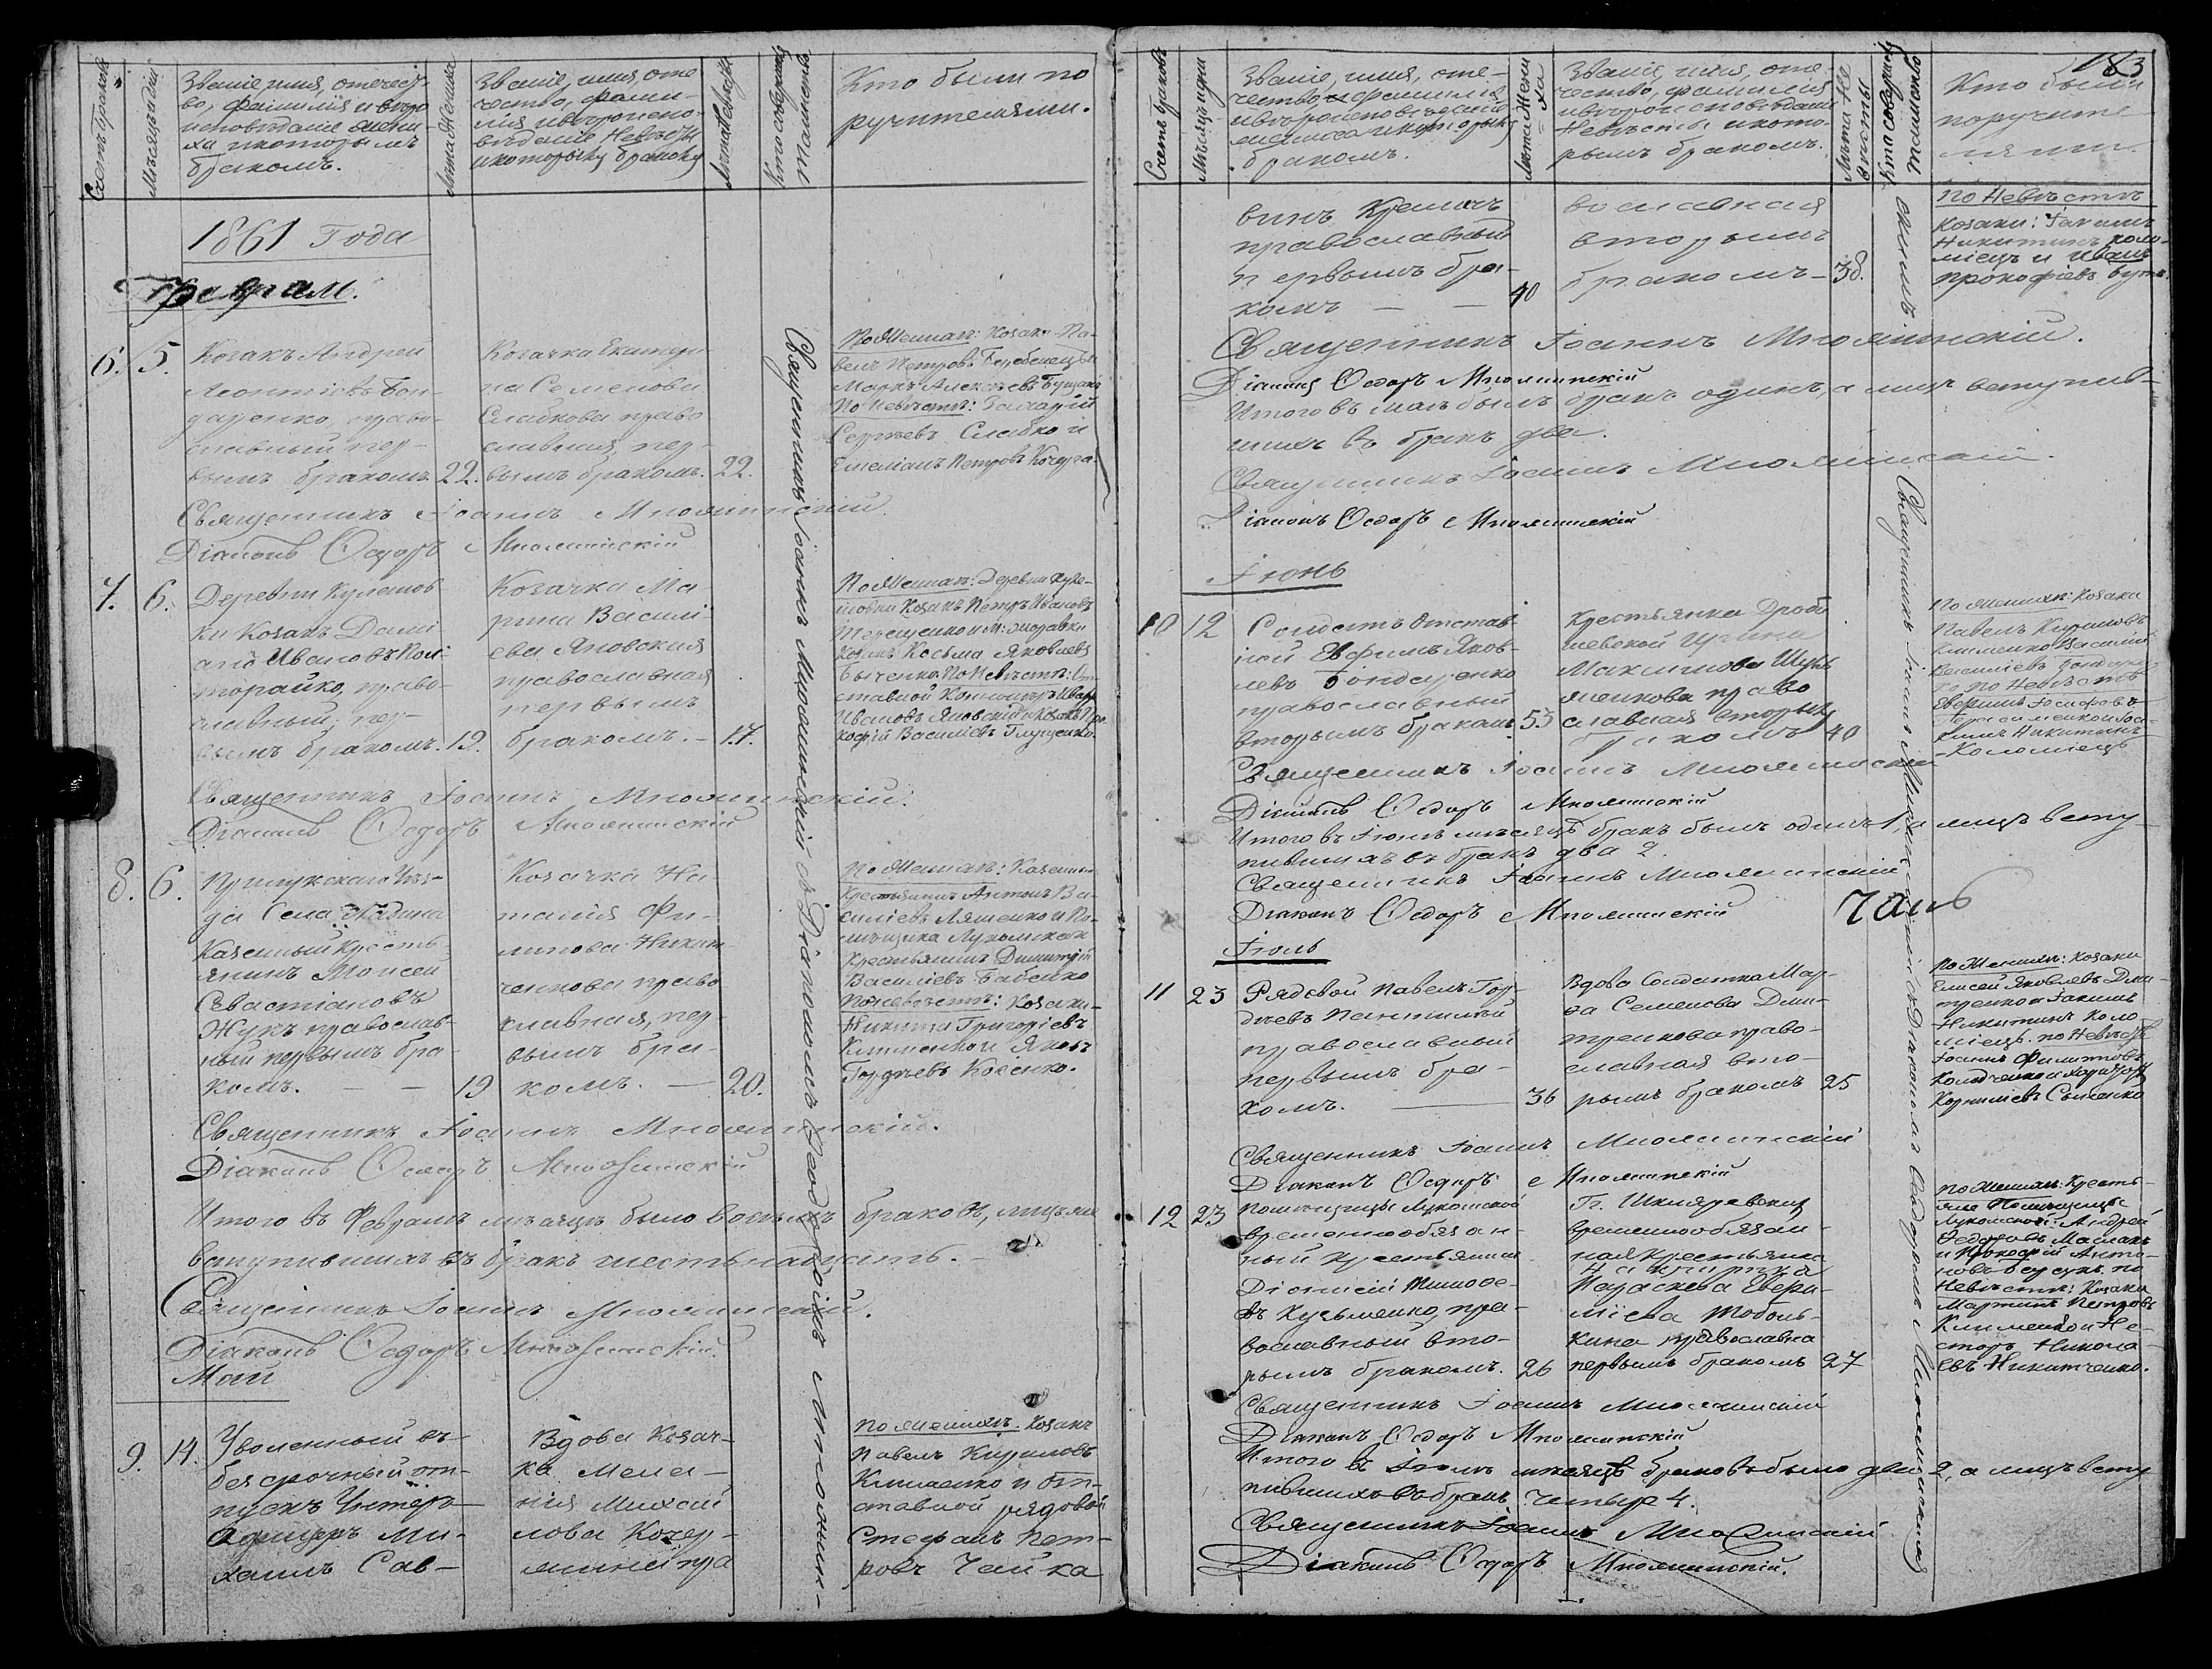 Счетъ браковъ
Мѣсяцъ и день
Званіе, имя, отечест-
во, фамилія и вѣро
исповѣданіе жени-
ха и которымъ
бракомъ.
Лѣта Жениха
Званіе, имя, оте
чество, фами-
лія и вѣроиспо-
вѣданіе Невѣсты
и которымъ бракомъ
Лѣта Невѣсты
Кто совершалъ
таинство
Кто были по
ручителями.
1861 Года
Февраль.
6. 5.
Козакъ Андрей
Леонтіевъ Бон-
даренко, право-
славный пер-
вымъ бракомъ. 22.
Козачка Екатери-
на Семенова
Сладкова право
славная, пер-
вымъ бракомъ. 22.
По Женихѣ: Козаки Па-
велъ Петровъ Геребенецъ и
Маркъ Алексѣевъ
По Невѣстѣ: Захарій
Сергѣевъ Сладко и
Емеліанъ Петровъ Кочура.
Священникъ Іоаннъ Мноминскій.
Діаконъ Ѳедоръ Мноминскій
7. 6.
Деревни Кулешов
ки Козакъ Дамі
анъ Ивановъ
право-
славный, пер-
вымъ бракомъ. 19.
Козачка Ма
рина Василі-
ева Яновская
православная
первымъ
бракомъ. — 17.
По Женихѣ: Деревни Куле-
шовки Козакъ Петръ Ивановъ
Терещенко и М:
Козакъ Косьма Яковлевъ
Быченко. По Невѣстѣ: От-
ставной Иванъ
Ивановъ Яновскій и Козакъ Про
кофій Васильевъ Глущенко.
Священникъ Іоаннъ Мноминскій.
Діаконъ Ѳедоръ Мноминскій
8. 6.
Прилукскаго Уѣз-
да Села
Казенный Кресть-
янинъ Моисей
Севастіановъ
Жукъ православ-
ный первымъ бра-
комъ. — — 19
Козачка На-
талія Фи-
липова Никит-
ченкова право
славная, пер-
вымъ бра-
комъ. — 20.
По Женихѣ: Казенный
Крестьянинъ Антонъ Ва-
силіевъ Ляшенко и По-
мѣщика
Крестьянинъ Димитрій
Василіевъ Бабенко
По невѣстѣ: Козаки
Никита Григоріевъ
Клименко и Яковъ
Гордѣевъ Косенко.
Священникъ Іоаннъ Мноминскій.
Діаконъ Ѳедоръ Мноминскій
Итого въ Февралѣ мѣсяцѣ было восемь браковъ, лицъ же
вступившихъ въ бракъ шестьнадцать. —
Священникъ Іоаннъ Мноминскій.
Діаконъ Ѳедоръ Мноминскій.
Май
9. 14.
Уволенный въ
безсрочный от-
пускъ Унтеръ
Офицеръ Ми-
хаилъ Сав-
Вдова Козач-
ка Мела-
нія Михай
лова
пра
По женихѣ. Козакъ
Павелъ Кириловъ
Клименко и От-
ставной рядовой
Стефанъ Пет-
ровъ Чайка
Священникъ Іоаннъ Мноминскій съ Діакономъ Ѳеодоромъ Мномин-
183
Счетъ браковъ
Мѣсяцъ и день
Званіе, имя, оте-
чество, фамилія
и вѣроисповѣданіе
жениха и которымъ
бракомъ.
Лѣта Жени
ха
Званіе, имя, оте-
чество, фамилія
и вѣроисповѣданіе
Невѣсты и кото-
рымъ бракомъ.
Лѣта Не
вѣсты
Кто совершалъ
таинство
Кто были
поручите-
лями.
винъ
православный
первымъ бра-
комъ — — 40
вославная
вторымъ
бракомъ — 38.
скимъ
По Невѣстѣ
Козаки: Іакимъ
Никитинъ Коло-
міецъ и Иванъ
Прокофіевъ
Священникъ Іоаннъ Мноминскій.
Діаконъ Ѳедоръ Мноминскій
Итого въ маѣ былъ бракъ одинъ, а лицъ вступив-
шихъ въ бракъ два.
Священникъ Іоаннъ Мноминскій.
Діаконъ Ѳедоръ Мноминскій
Іюнь
10 12
Солдатъ Отстав-
ной Евфимъ Яков-
левъ Бондаренко
православный
вторымъ бракомъ. 53
Крестьянка
Ирина
Максимова
право
славная вторымъ
бракомъ 40
По женихѣ: Козаки
Павелъ Кириловъ
Клименко Василій
Василіевъ Бондарен
ко По Невѣстѣ

Герасименко и Іоа-
кимъ Никитинъ
Коломіецъ
Священникъ Іоаннъ Мноминскій
Діаконъ Ѳедоръ Мноминскій
Итого въ Іюнѣ мѣсяцѣ бракъ былъ одинъ 1, а лицъ всту-
пившихъ въ бракъ два 2.
Священникъ Іоаннъ Мноминскій
Діаконъ Ѳедоръ Мноминскій
Іюль
11 23
Рядовой Павелъ Гор-
дѣевъ
православный
первымъ бра-
комъ. — 36
Вдова Солдатка Мар-
ѳа Семенова Дми-
тренкова право-
славная вто-
рымъ бракомъ 25
По Женихѣ: Козаки
Елисей Яковлевъ Дми-
тренко и Іакимъ
Никитинъ Коло
міецъ. по Невѣстѣ
Іоаннъ Филиповъ

Корниліевъ
Священникъ Іоаннъ Мноминскій
Діаконъ Ѳедоръ Мноминскій
12 23
Помѣщицы Лукомской
временнообязан-
ный крестьянинъ
Діонисій Тимоѳе-
евъ Кузьменко, пра-
вославный вто-
рымъ бракомъ. 26
Гг. Шкляревскихъ
временнообязан-
ная крестьянка
Параскева

православна
первымъ бракомъ 27
По Женихѣ: Кресть-
яне Помѣщицы
Лукомской: Андрей
Ѳедоровъ Маслакъ
и Прокофій Анто-
новъ по
Невѣстѣ: Козаки
Мартинъ Петровъ
Клименко и Не-
сторъ Никола-
евъ Никитченко.
Священникъ Іоаннъ Мноминскій
Діаконъ Ѳедоръ Мноминскій
Итого въ Іюлѣ мѣсяцѣ браковъ было два 2, а лицъ всту
пившихъ въ бракъ четыре 4.
Священникъ Іоаннъ Мноминскій
Діаконъ Ѳедоръ Мноминскій.
Священникъ Іоаннъ Мноминскій съ Діакономъ Ѳеодоромъ Мноминскимъ